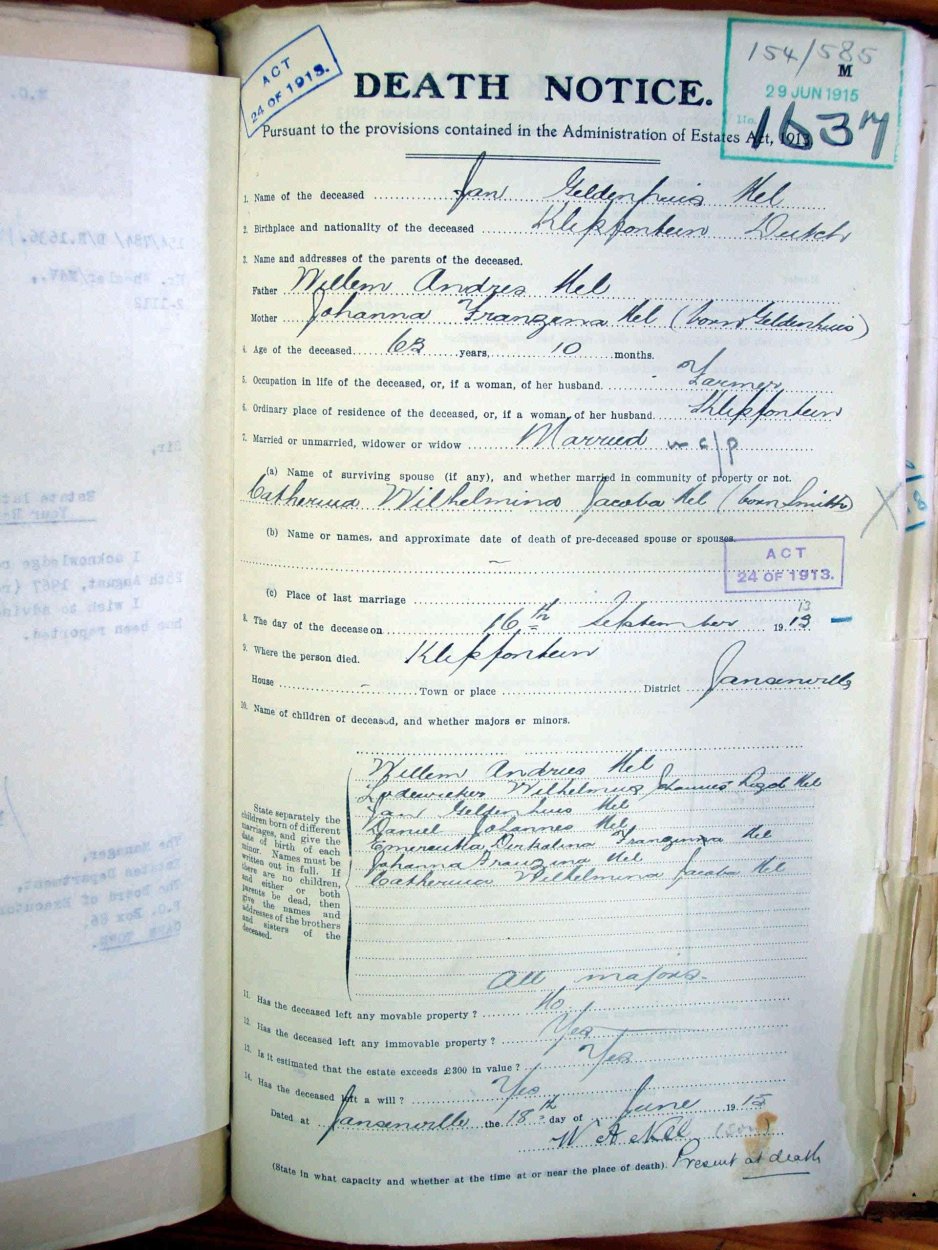 ACT
24 OF 1913.
154/585
M
29 JUN 1915
No. 1637
DEATH NOTICE.
Pursuant to the provisions contained in the Administration of Estates Act, 1913
1. Name of the deceased Jan Geldenhuis Nel
2. Birthplace and nationality of the deceased Klipfontein Dutch
3. Name and addresses of the parents of the deceased.
Father Willem Andres Nel
Mother Johanna Franzina Nel (born Geldenhuis)
4. Age of the deceased 63 years, 10 months.
5. Occupation in life of the deceased, or, if a woman, of her husband. Farmer
6. Ordinary place of residence of the deceased, or, if a woman, of her husband. Klipfontein
7. Married or unmarried, widower or widow Married in c/p
(a) Name of surviving spouse (if any), and whether married in community of property or not.
Catherina Wilhelmina Jacoba Nel (born Smith)
(b) Name or names, and approximate date of death of pre-deceased spouse or spouses.
ACT
24 OF 1913.
(c) Place of last marriage
13
8. The day of the decease on 16th September 1913
9. Where the person died. Klipfontein
House Town or place District Jansenville
10. Name of children of deceased, and whether majors or minors.
State separately the
children born of different
marriages, and give the
date of birth of each
minor. Names must be
written out in full. If
there are no children,
and either or both
parents be dead, then
give the names and
addresses of the brothers
and sisters of the
deceased.
Willem Andries Nel
Wilhelmus Johannes Nel
Jan Geldenhuis Nel
Daniel Johannes Nel
Franzina Nel
Johanna Franzina Nel
Catherina Wilhelmina Jacoba Nel
All majors.
11. Has the deceased left any movable property? No
12. Has the deceased left any immovable property? Yes
13. Is it estimated that the estate exceeds £300 in value? Yes
14. Has the deceased left a will? Yes
Dated at Jansenville the 18th day of June 1915
W A Nel (son)
(State in what capacity and whether at the time at or near the place of death). Present at death